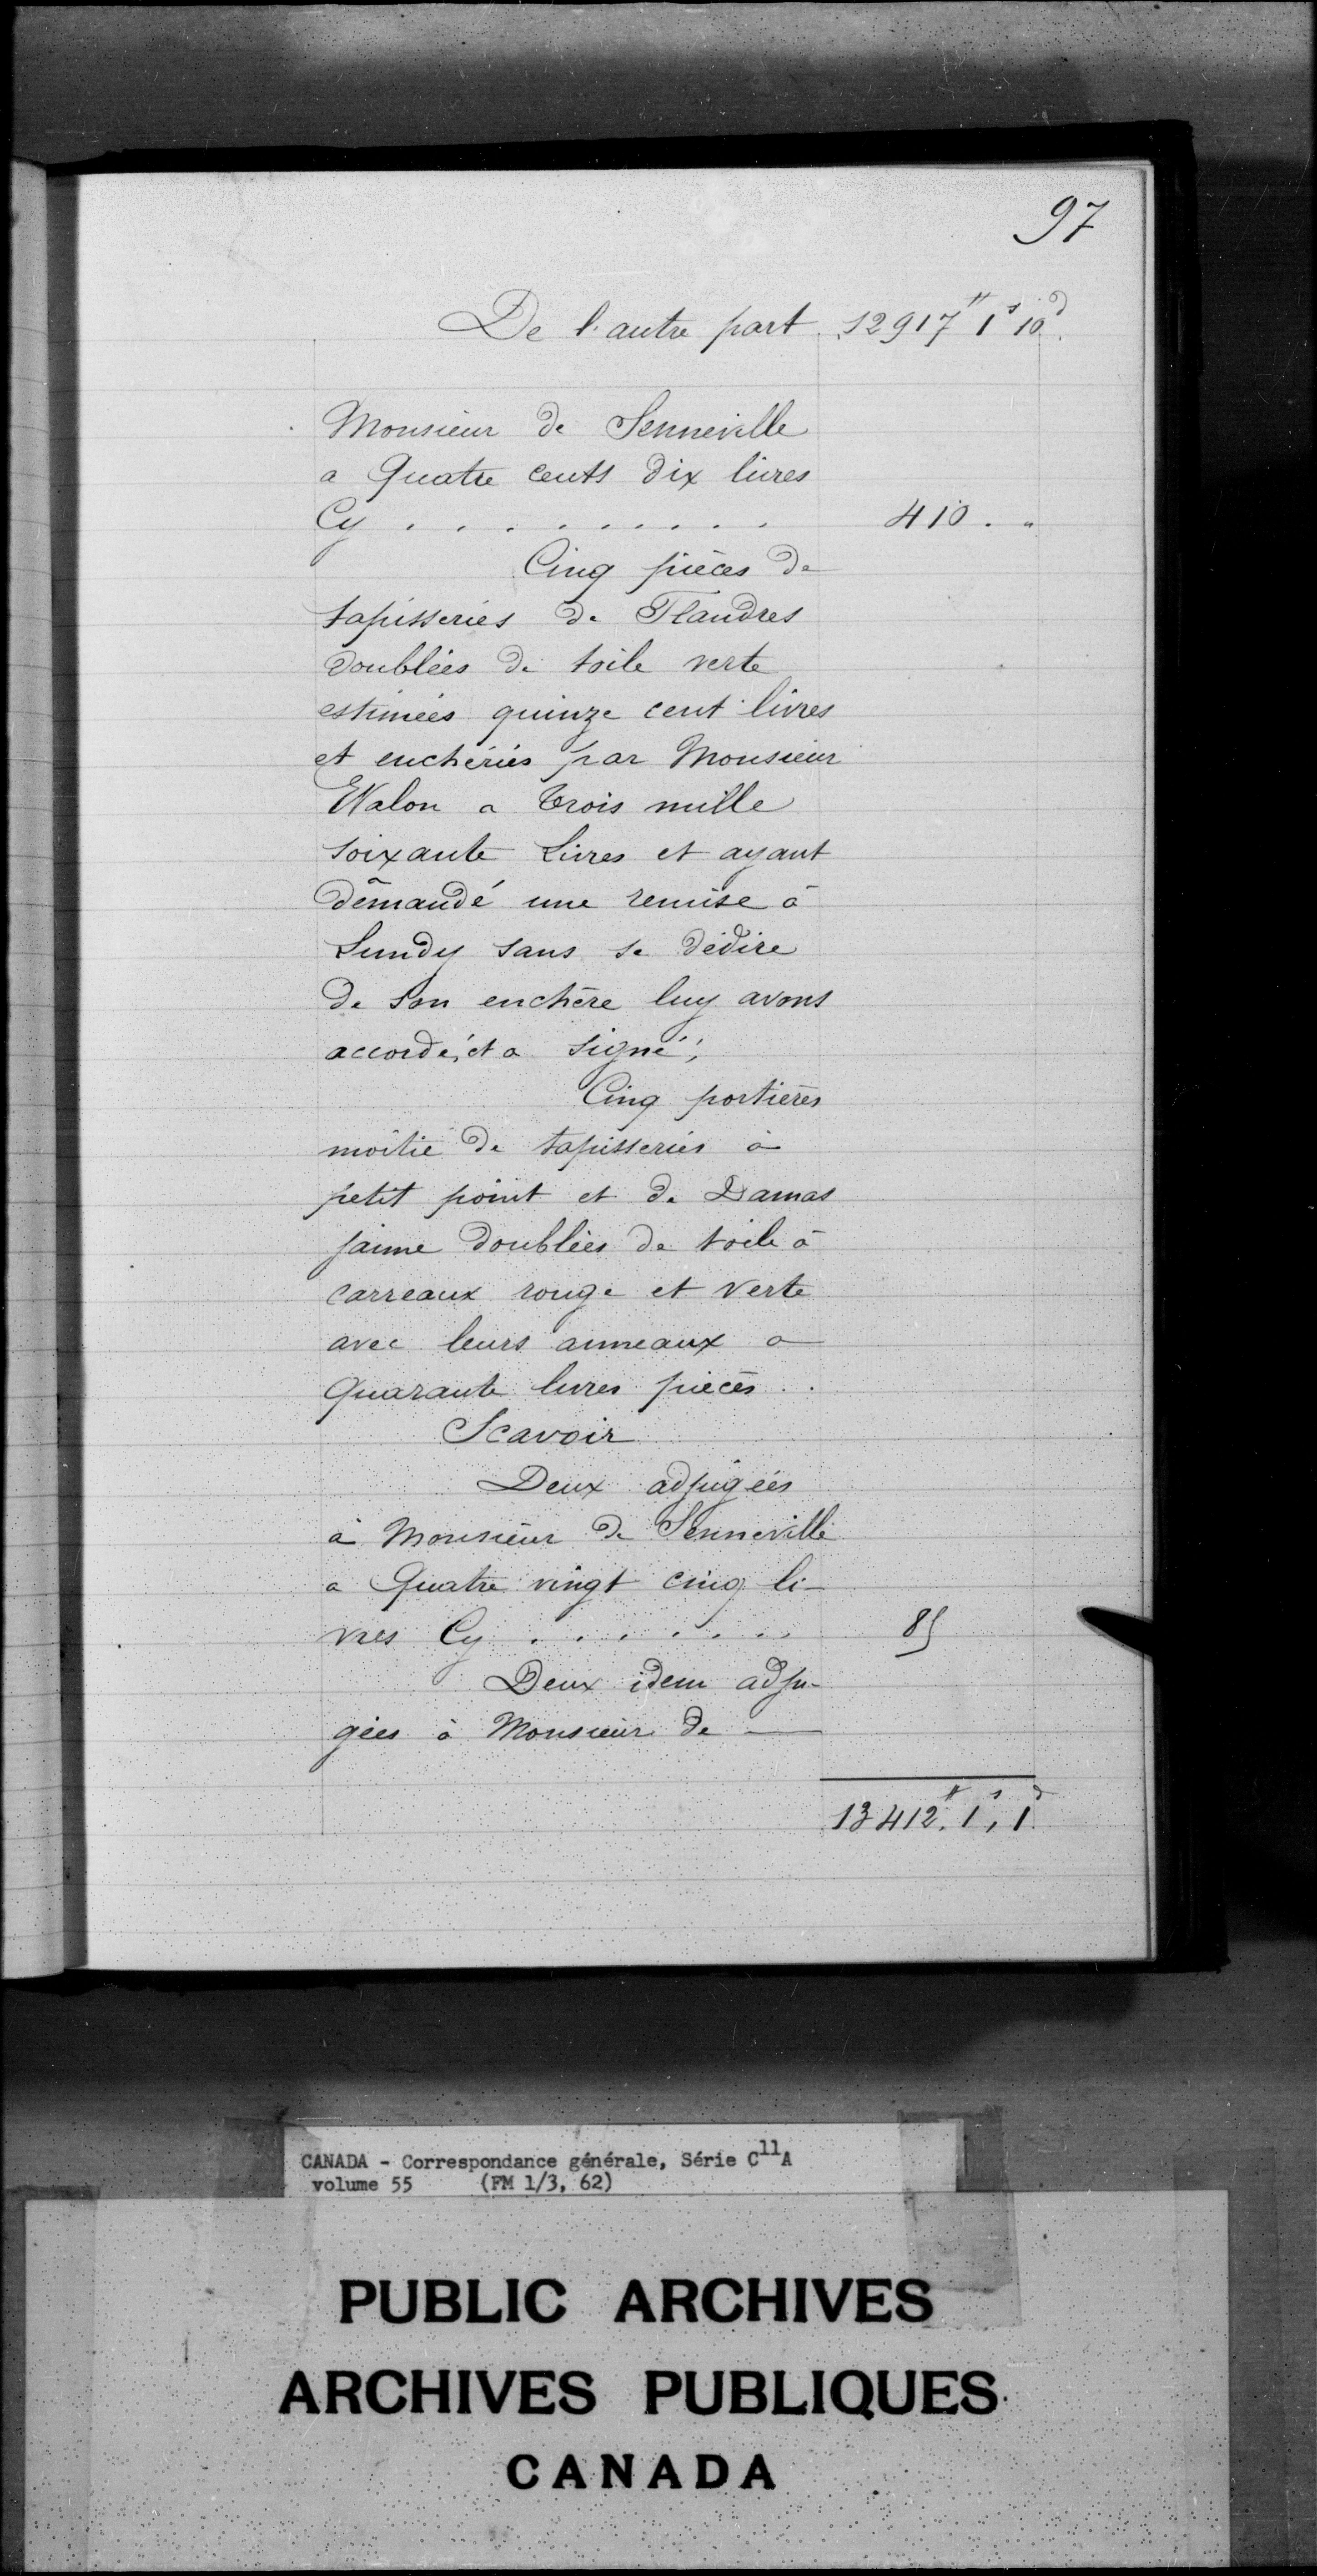 97
De l'autre part. 12917# 1s 10d.
Monsieur de Senneville
a Quatre cents dix livres
Cy . . . . . . . . . . 410 . "
Cinq pièces de
tapisseries de Flandres
doublées de toile verte
estimées quinze cent livres
et enchéries par Monsieur
Walon a trois mille
soixante Livres et ayant
démandé une remise à
Lundy sans se dédire
de son enchère luy avons
accordé, et a signé ;
Cinq portières
moitié de tapisseries à
petit point et de Damas
jaune doublées de toile à
carreaux rouge et verte
avec leurs anneaux a
Quarante livres pièces . .
Scavoir
Deux adjugées
à Monsieur de Senneville
a Quatre vingt cinq li-
vres Cy . . . . . . . 85
Deux idem adju-
gées à Monsieur de —
13412.# 1s, 1d
CANADA - Correspondance générale, Série C11A
volume 55 (FM 1/3, 62)
PUBLIC ARCHIVES
ARCHIVES PUBLIQUES
CANADA